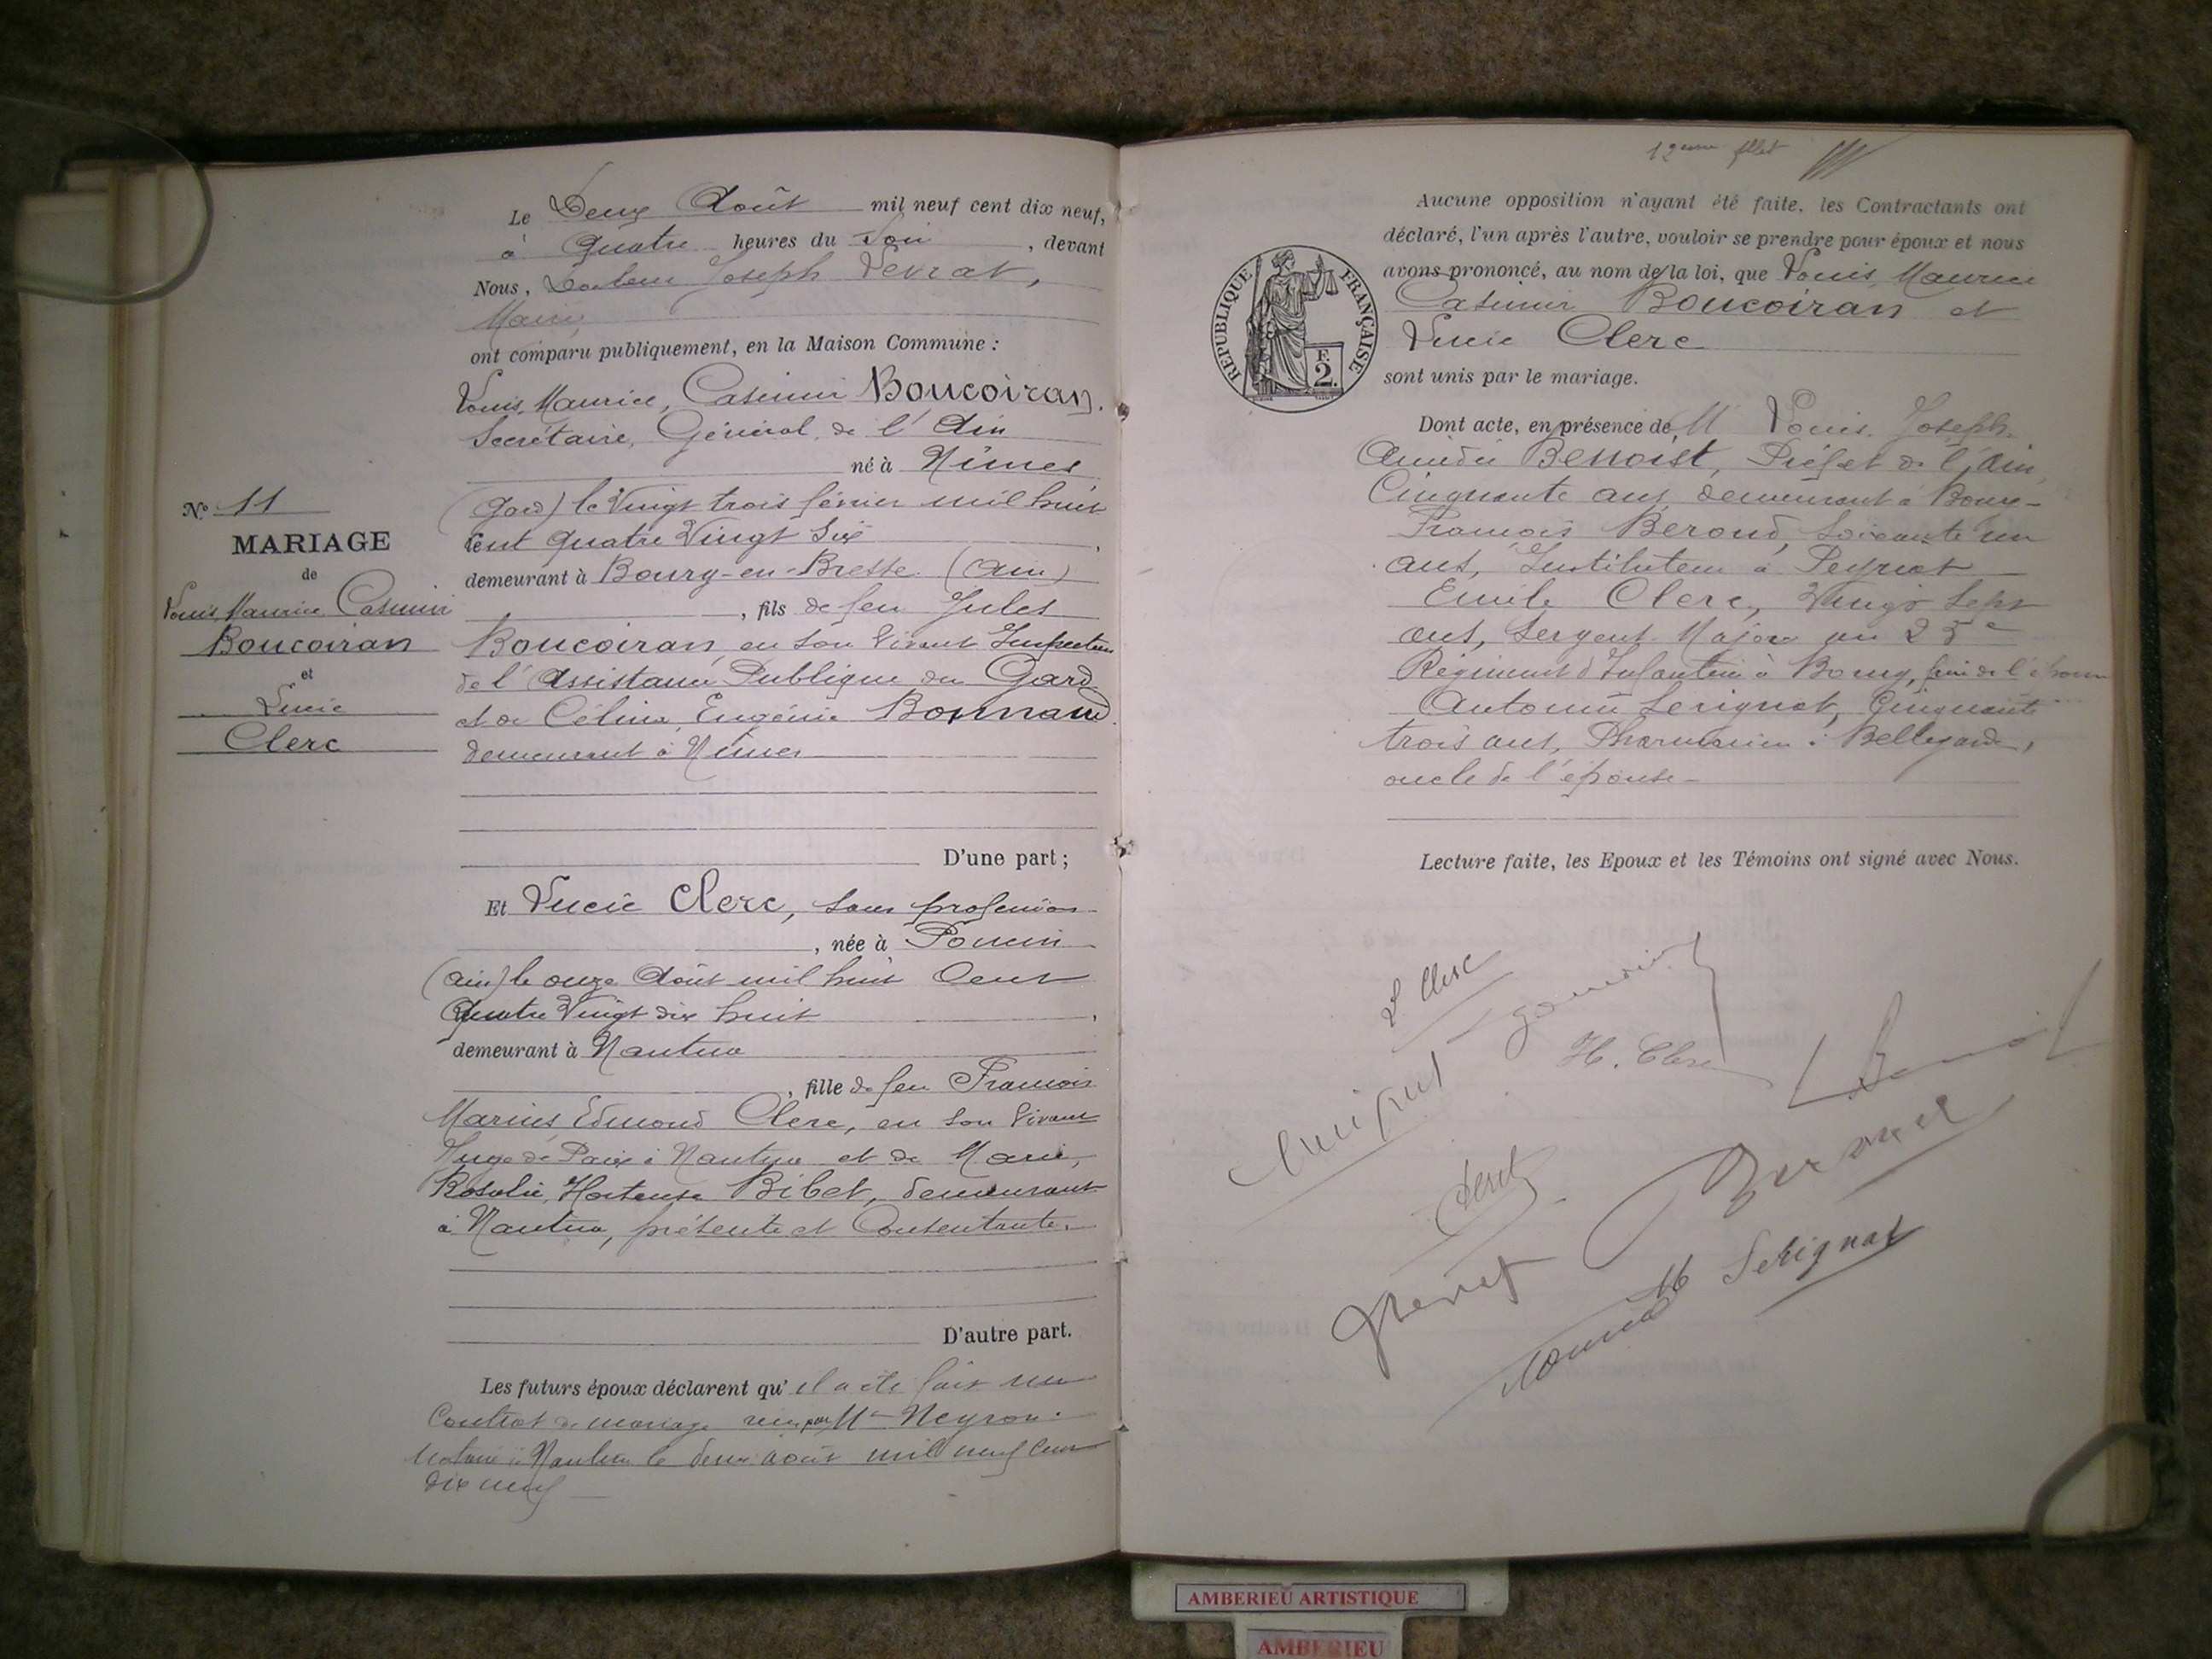 Le Deux Août mil neuf cent dix neuf,
à Quatre heures du Soir, devant
Nous, Docteur Joseph Levrat,
Maire,
ont comparu publiquement, en la Maison Commune :
Louis, Maurice, Casimir Boucoiran.
Secrétaire, Général, de l'Ain
né à Nîmes
(Gard) le Vingt trois février mil huit
cent quatre Vingt Six,
demeurant à Bourg-en-Bresse (Ain)
, fils de feu Jules
Boucoiran, en son vivant Inspecteur
de l'Assistance Publique du Gard
et de Célina, Eugénie Bonnaud
demeurant à Nîmes
N° 11
MARIAGE
de
Louis, Maurice Casimir
Boucoiran
et
Lucie
Clerc
D'une part ;
Et Lucie Clerc, sans profession
, née à Poncin
(Ain) le onze Août mil huit Cent
Quatre Vingt dix huit,
demeurant à Nantua
, fille de feu François
Marius Edmond Clerc, en son vivant
Juge de Paix à Nantua et de Marie,
Rosalie, Hortense Bibet, demeurant
à Nantua, présente et Consentante.
D'autre part.
Les futurs époux déclarent qu'il a été fait un
Contrat de mariage reçu par Me Neyron
Notaire à Nantua le deux août mil neuf cent
dix neuf
12eme
Aucune opposition n'ayant été faite, les Contractants ont
déclaré, l'un après l'autre, vouloir se prendre pour époux et nous
avons prononcé, au nom de la loi, que Louis, Maurice
Casimir Boucoiran et
Lucie Clerc
sont unis par le mariage.
REPUBLIQUE FRANÇAISE
F.
2.
Dont acte, en présence de M Louis, Joseph
Amédée Benoist, Préfet de l'Ain,
Cinquante ans, demeurant à Bourg-
François Beroud, Soixante un
ans, Instituteur à Peyriat
Emile Clerc, Vingt Sept
ans, Sergent-Major au 23e
Régiment d'Infanterie à Bourg,
Antonin Serignat, Cinquante
trois ans, Pharmacien à Bellegarde,
oncle de l'épouse-
Lecture faite, les Epoux et les Témoins ont signé avec Nous.
L Clerc
H. Clerc
Beroud
Serignat
AMBERIEU ARTISTIQUE
AMBERIEU